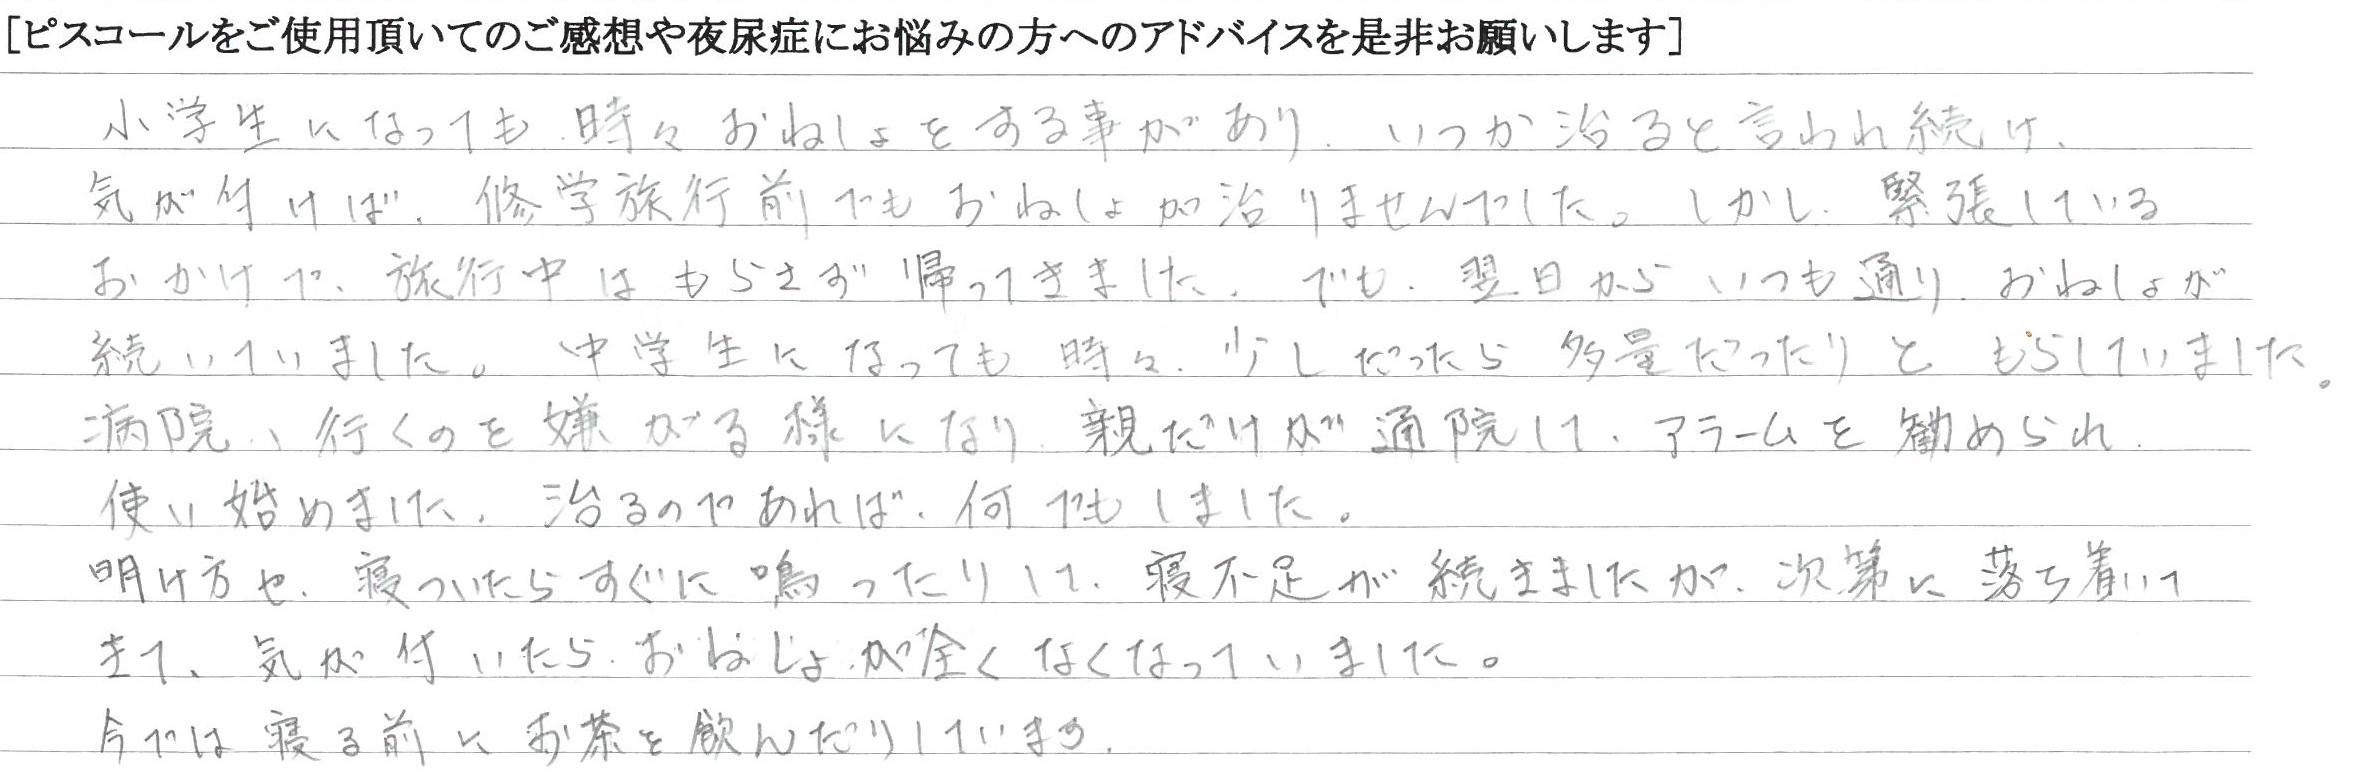 [ピスコールをご使用頂いてのご感想や夜尿症にお悩みの方へのアドバイスを是非お願いします]
小学生になっても、時々おねしょをする事があり、いつか治ると言われ続け、
気が付けば、修学旅行前でもおねしょが治りませんでした。しかし、緊張している
おかげで、旅行中はもらさず帰ってきました。でも、翌日からいつも通り、おねしょが
続いていました。中学生になっても時々、少しだったら多量だったりともらしていました。
病院へ行くのを嫌がる様になり、親だけが通院して、アラームを勧められ、
使い始めました。治るのであれば、何でもしました。
明け方や、寝ついたらすぐに鳴ったりして、寝不足が続きましたが、次第に落ち着いて
きて、気が付いたら、おねしょが全くなくなっていました。
今では寝る前にお茶を飲んだりしています。